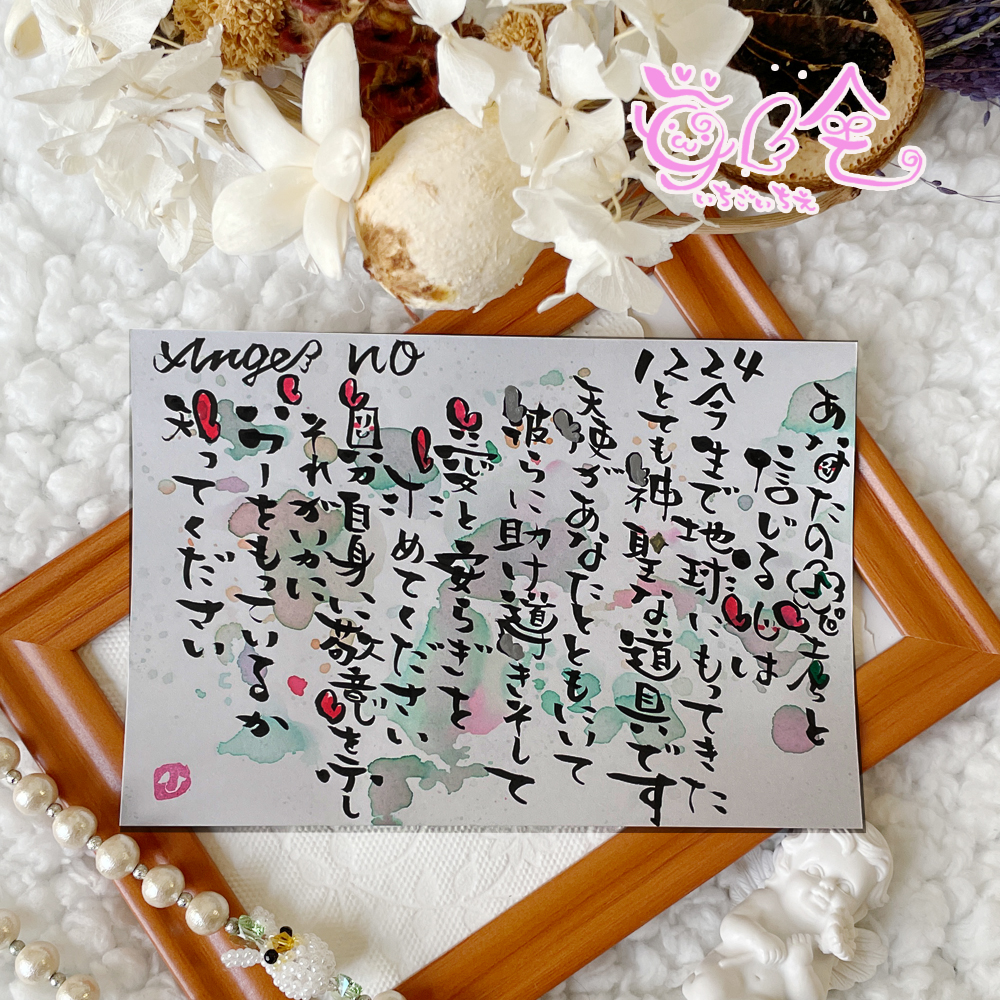 Angel NO 1224
あなたの思考と
信じる心は
今生で地球にもってきた
とても神聖な道具です
天使があなたとともにいて
彼らに助け導きそして
愛と安らぎを
求めてください
自分自身に敬意を示し
それがいかに
パワーをもっているか
知ってください
いちごいちえ